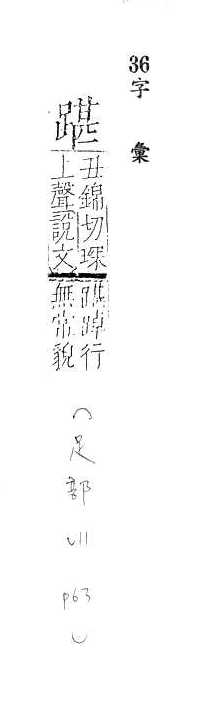 36字 彙
踸
丑錦切琛
上聲說文
踸踔行
無常貌
(足部 p63)